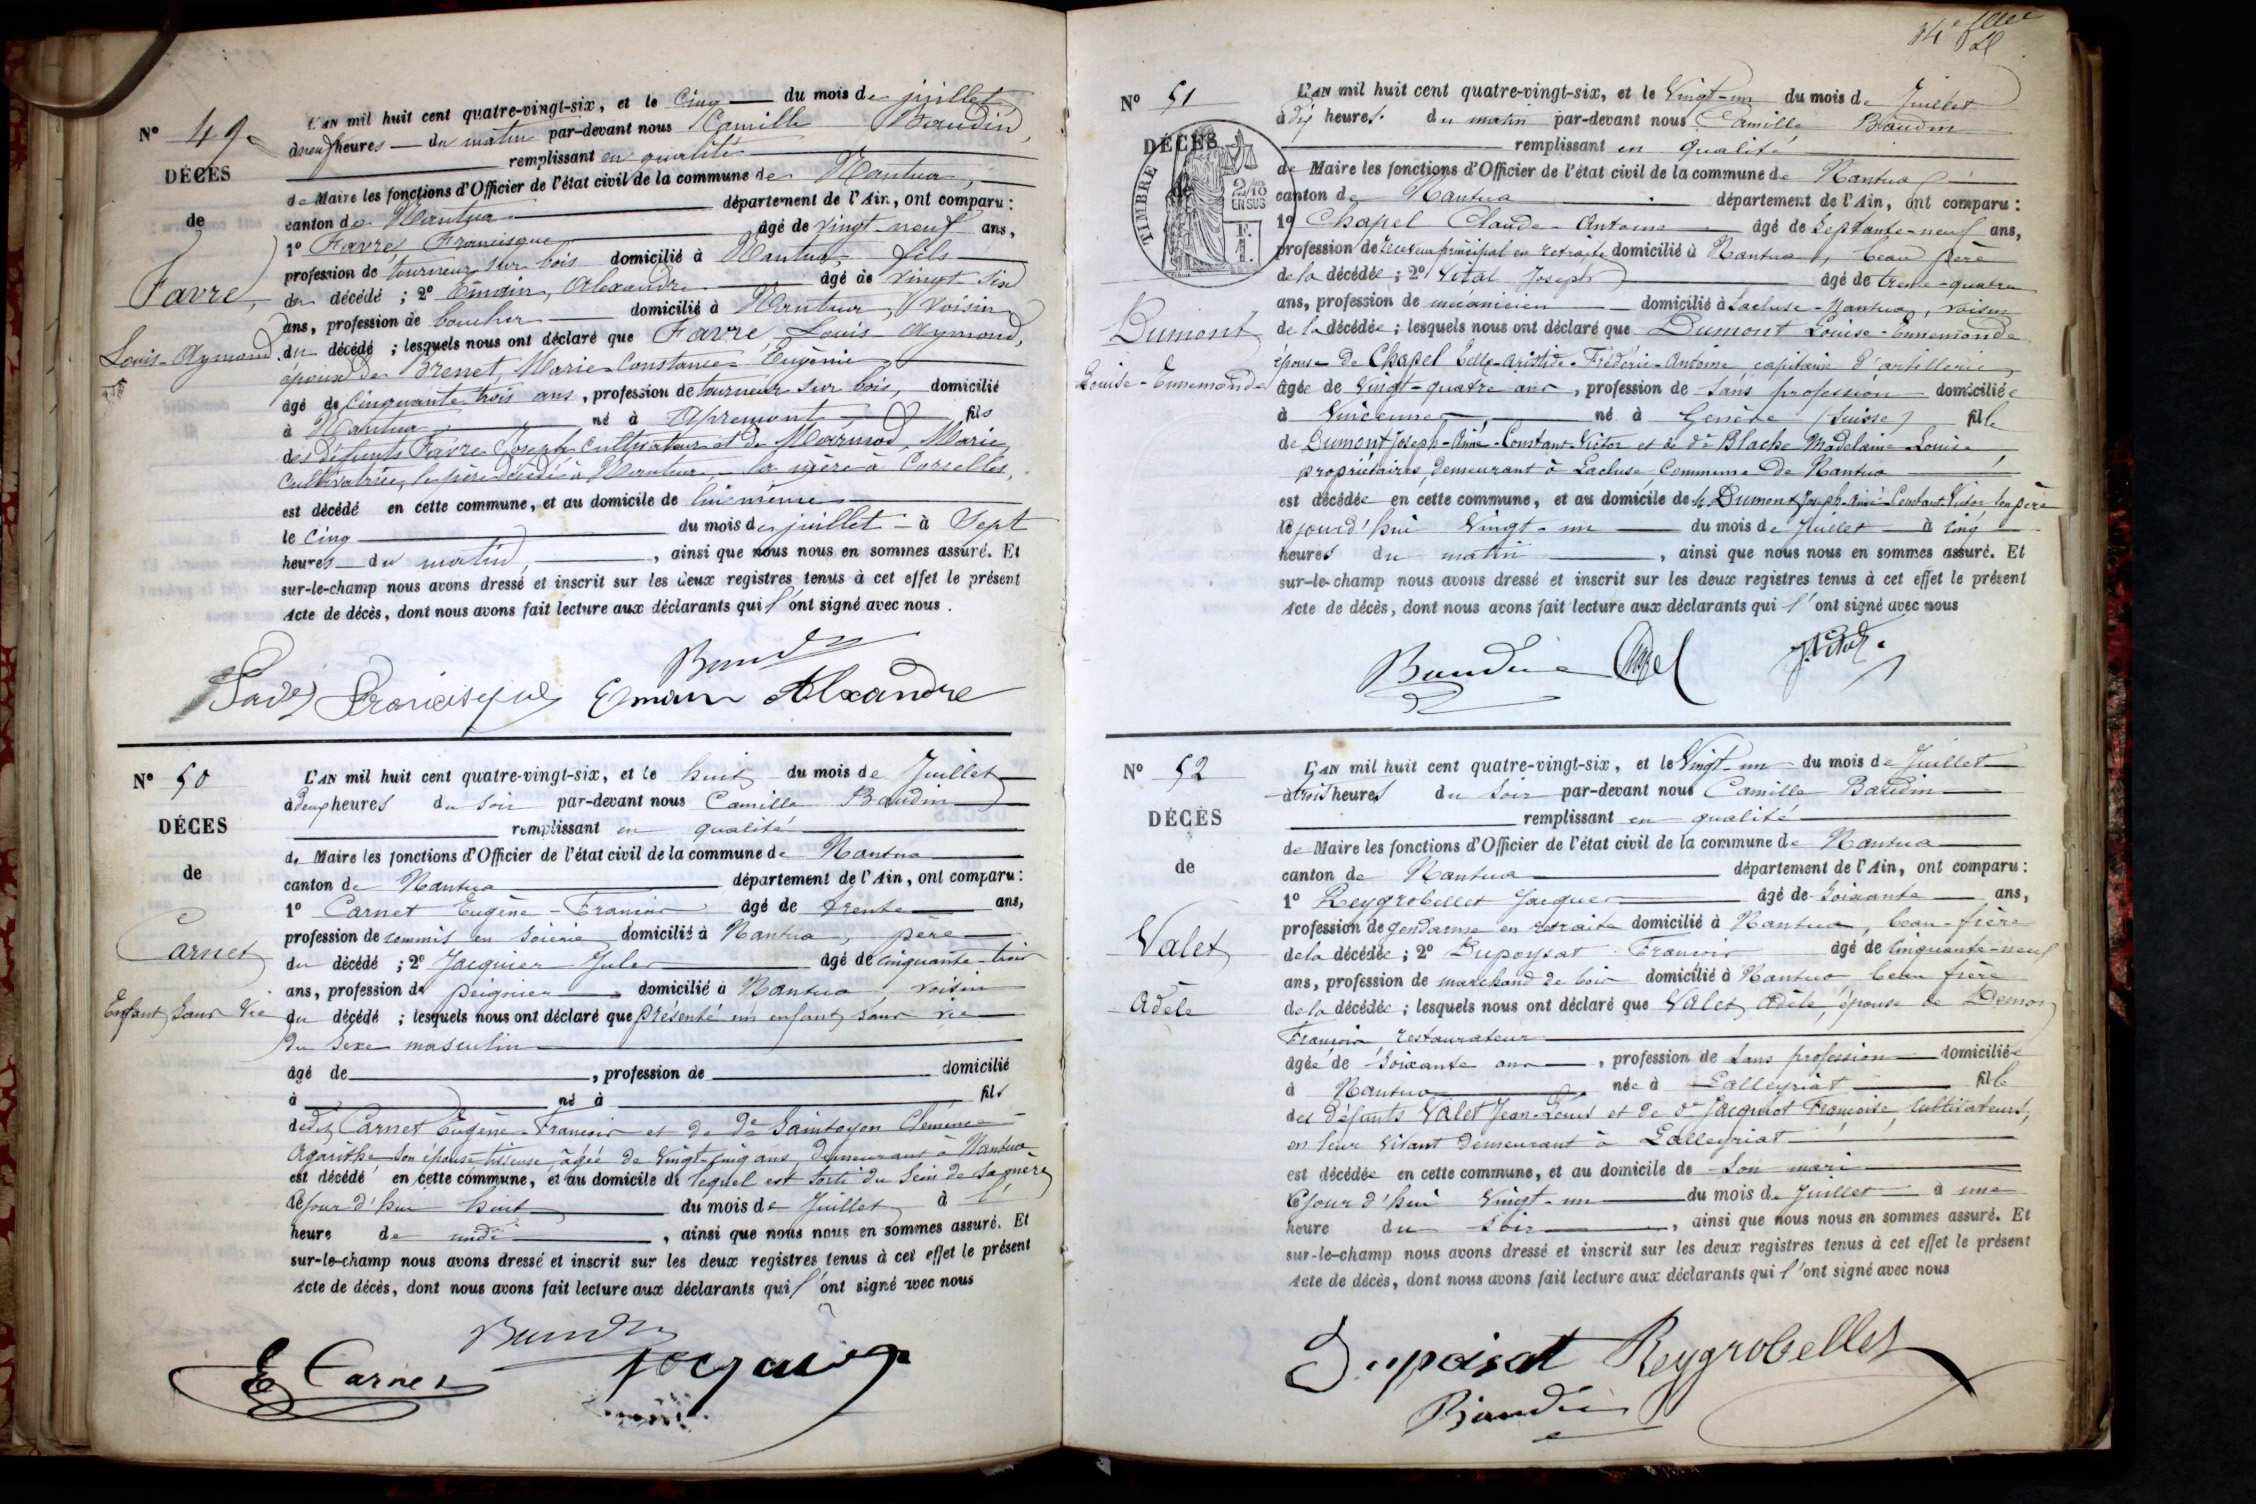 Nº 49
DÉCÈS
de
Favre,
Louis-Aymond
L'AN mil huit cent quatre-vingt-six, et le Cinq du mois de juillet
à neuf heures du matin par-devant nous Camille Baudin,
remplissant en qualité
de Maire les fonctions d'Officier de l'état civil de la commune de Nantua,
canton de Nantua département de l'Ain, ont comparu :
1º Favre Francisque âgé de vingt-neuf ans,
profession de tourneur sur bois domicilié à Nantua, fils
du décédé ; 2º Emain, Alexandre âgé de vingt six
ans, profession de boucher domicilié à Nantua, voisin
du décédé ; lesquels nous ont déclaré que Favre Louis-Aymond,
époux de Brenet Marie-Constance Eugénie
âgé de cinquante trois ans, profession de tourneur sur bois, domicilié
à Nantua né à Apremont fils
des défunts Favre Joseph cultivateur et de Marmod, Marie,
cultivatrice, le père décédé à Nantua, la mère à Corcelles,
est décédé en cette commune, et au domicile de lui même
le Cinq du mois de juillet à Sept
heures du matin, ainsi que nous nous en sommes assuré. Et
sur-le-champ nous avons dressé et inscrit sur les deux registres tenus à cet effet le présent
Acte de décès, dont nous avons fait lecture aux déclarants qui l'ont signé avec nous.
Baudin
Favre Francisque Emain Alexandre
Nº 50
DÉCES
de
Carnet
Enfant sans vie
L'AN mil huit cent quatre-vingt-six, et le huit du mois de Juillet
à deux heures du soir par-devant nous Camille Baudin
remplissant en qualité
de Maire les fonctions d'Officier de l'état civil de la commune de Nantua
canton de Nantua département de l'Ain, ont comparu :
1º Carnet Eugène-François âgé de trente ans,
profession de commis en soierie domicilié à Nantua, père
du décédé ; 2º Jacquier Jules âgé de cinquante-trois
ans, profession de peignier domicilié à Nantua, voisin
du décédé ; lesquels nous ont déclaré que présenté un enfant sans vie
du sexe masculin
âgé de , profession de domicilié
à né à fils
dudit Carnet Eugène-François et de de Saintoyen Clémence
Agarithe son épouse tisseuse, âgée de vingt-cinq ans demeurant à Nantua
est décédé en cette commune, et au domicile de lequel est sorti du sein de sa mère
ce jour d'hui huit du mois de Juillet à l'
heure de midi, ainsi que nous nous en sommes assuré. Et
sur-le-champ nous avons dressé et inscrit sur les deux registres tenus à cet effet le présent
Acte de décès, dont nous avons fait lecture aux déclarants qui l'ont signé avec nous
Baudin
E Carnet Jacquier
34e
Nº 51
DÉCÈS
TIMBRE
2/10 EN SUS
F. 1.
de
Dumont
Louise-Ennemonde
L'AN mil huit cent quatre-vingt-six, et le Vingt-un du mois de Juillet
à dix heures du matin par-devant nous Camille Baudin
remplissant en qualité
de Maire les fonctions d'Officier de l'état civil de la commune de Nantua
canton de Nantua département de l'Ain, ont comparu :
1º Chapel Claude-Antoine âgé de septante-neuf ans,
profession de receveur principal en retraite domicilié à Nantua, beau père
de la décédée ; 2º Vital Joseph âgé de trente-quatre
ans, profession de mécanicien domicilié à Lacluse-Nantua, voisin
de la décédée ; lesquels nous ont déclaré que Dumont Louise-Ennemonde
épouse de Chapel Lelle-Aristide-Frédéric-Antoine capitaine d'artillerie
âgée de vingt-quatre ans, profession de sans profession domiciliée
à Vincennes né à Genève (Suisse) fille
de Dumont Joseph-Aimé-Constant-Victor et de de Blache Madelaine-Louise
propriétaires, demeurant à Lacluse Commune de Nantua
est décédée en cette commune, et au domicile de Dumont Joseph-Aimé-Constant-Victor son père
ce jourd'hui vingt-un du mois de Juillet à cinq
heures du matin, ainsi que nous nous en sommes assuré. Et
sur-le-champ nous avons dressé et inscrit sur les deux registres tenus à cet effet le présent
Acte de décès, dont nous avons fait lecture aux déclarants qui l'ont signé avec nous
Baudin Chapel J. Vital
Nº 52
DÉCÈS
de
Valet
Adèle
L'AN mil huit cent quatre-vingt-six, et le Vingt-un du mois de Juillet
à trois heures du soir par-devant nous Camille Baudin
remplissant en qualité
de Maire les fonctions d'Officier de l'état civil de la commune de Nantua
canton de Nantua département de l'Ain, ont comparu :
1º Reygrobellet Jacques âgé de soixante ans,
profession de gendarme en retraite domicilié à Nantua, beau-frère
de la décédée ; 2º Dupoysat François âgé de cinquante-neuf
ans, profession de marchand de bois domicilié à Nantua beau frère
de la décédée ; lesquels nous ont déclaré que Valet Adèle, épouse de Demon
François, restaurateur
âgée de soixante ans, profession de sans profession domiciliée
à Nantua née à Lalleyriat fille
des défunts Valet Jean-Louis et de de Jacquiot Françoise, cultivateurs,
en leur vivant demeurant à Lalleyriat
est décédée en cette commune, et au domicile de son mari
ce jour d'hui vingt-un du mois de Juillet à une
heure du soir, ainsi que nous nous en sommes assuré. Et
sur-le-champ nous avons dressé et inscrit sur les deux registres tenus à cet effet le présent
Acte de décès, dont nous avons fait lecture aux déclarants qui l'ont signé avec nous
Dupoisat Reygrobellet
Baudin